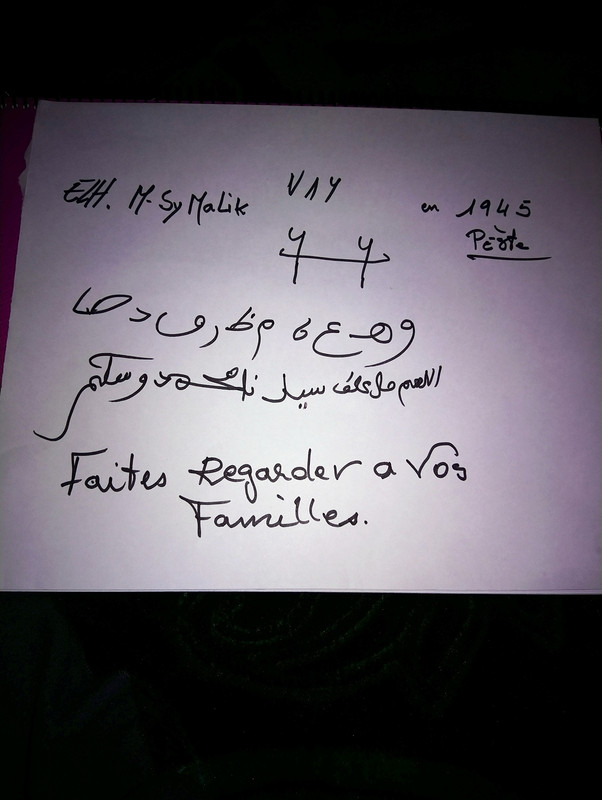 ELH. M-Sy Malik V1Y en 1945
Pèste
اللهم صل على سيدنا محمد وسلم
Faites Regarder a Vos
Familles.